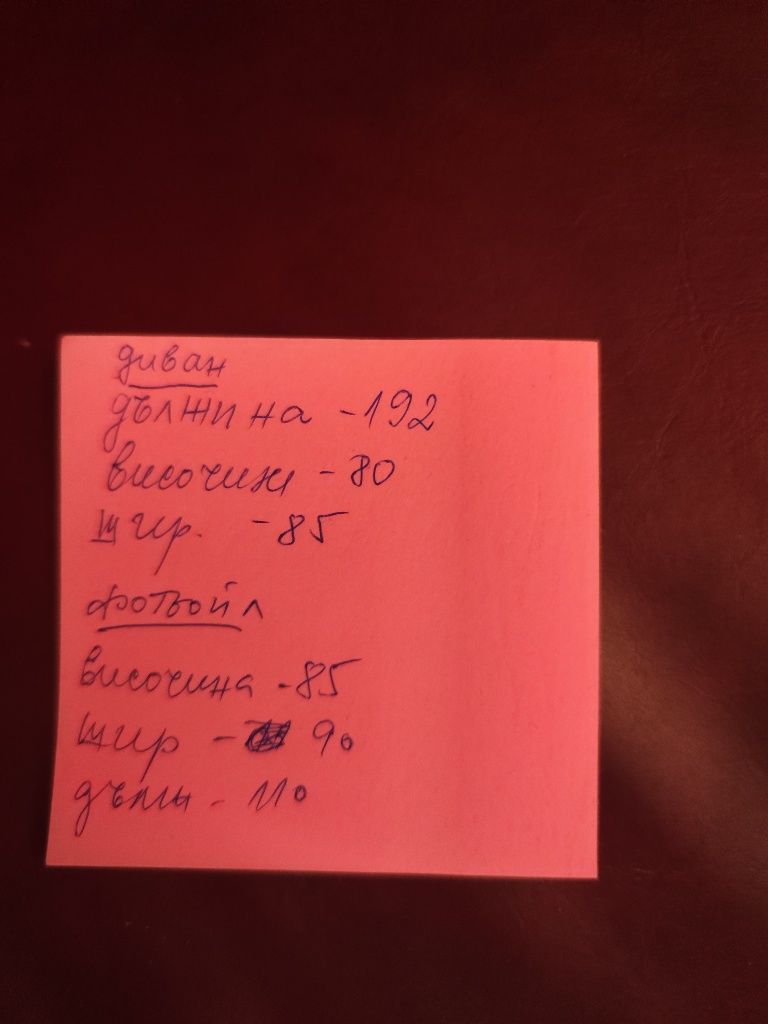 диван
дължина -192
височин - 80
шир. - 85
фотьойл
височина - 85
шир - 90
дълж - 110